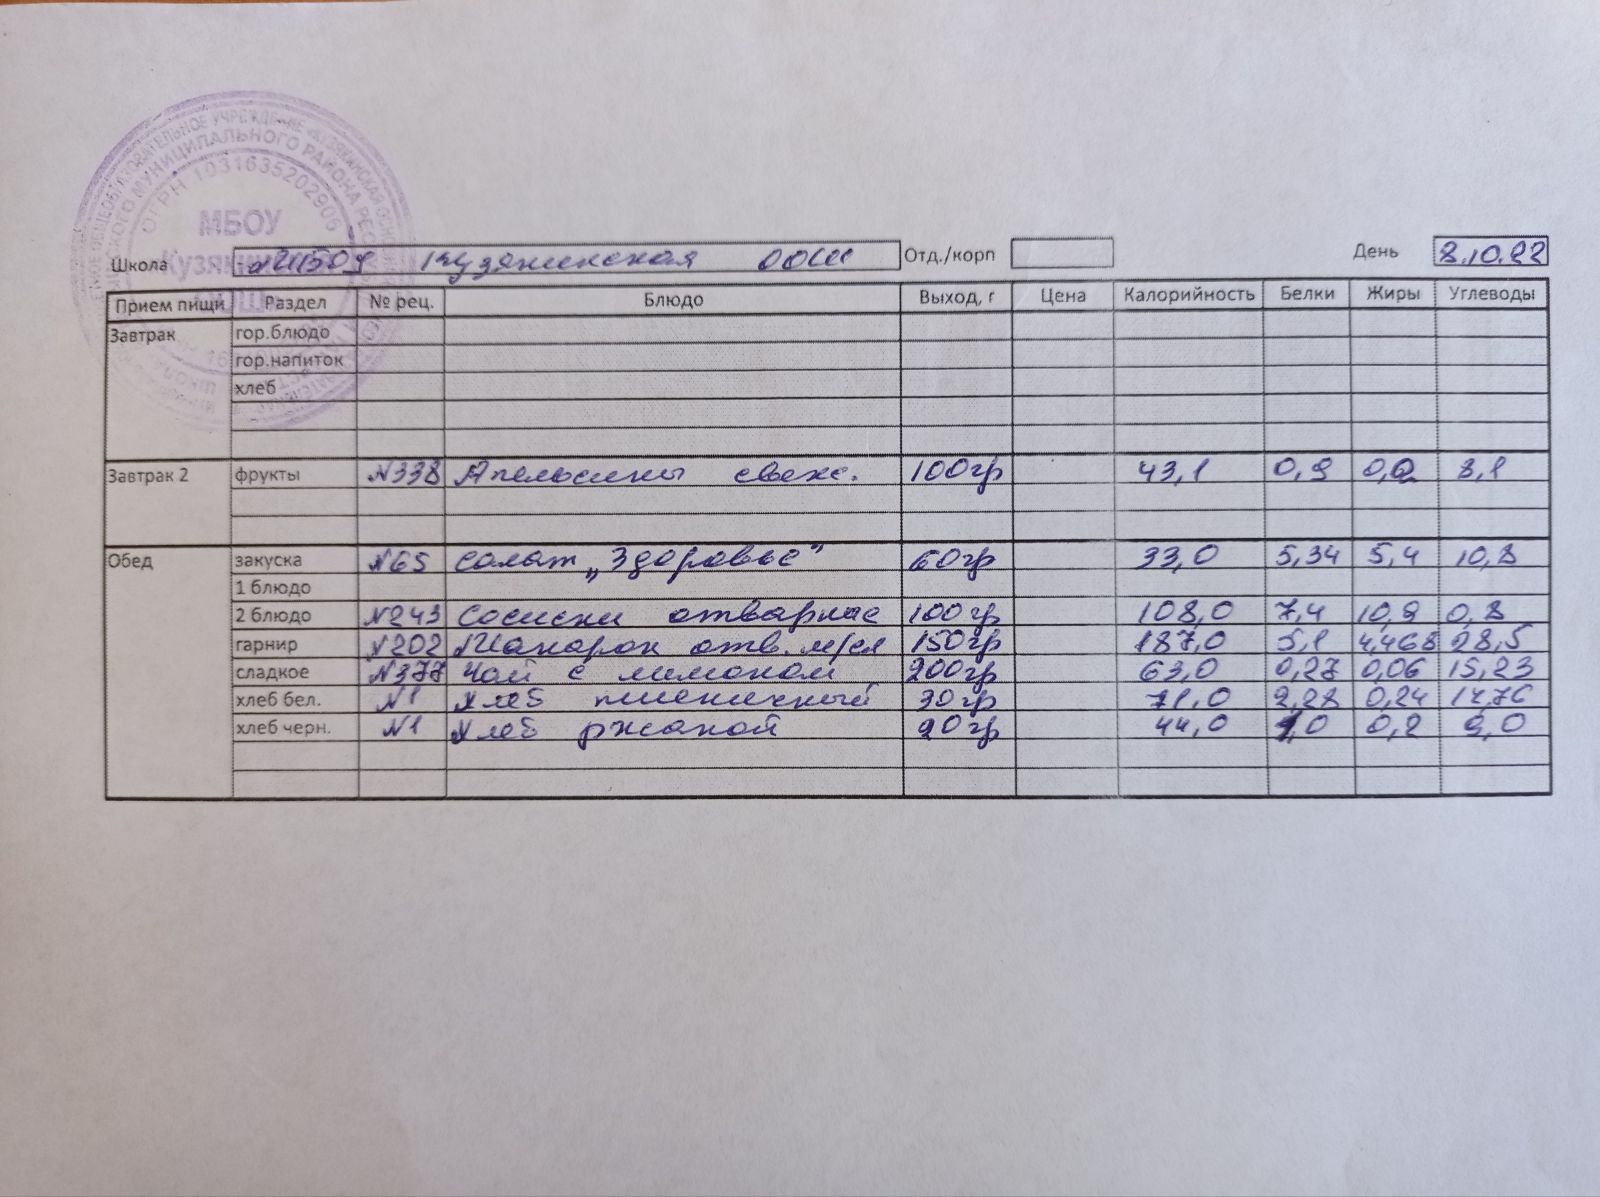 МУНИЦИПАЛЬНОГО РАЙОНА
ОГРН 1031635202906
МБОУ
Школа МБОУ Кузякинская ООШ Отд./корп День 8.10.22
Прием пищи Раздел № рец. Блюдо Выход, г Цена Калорийность Белки Жиры Углеводы
Завтрак гор.блюдо
гор.напиток
хлеб
Завтрак 2 фрукты №338 Апельсины свеж. 100гр 43,1 0,9 0,2 8,1
Обед закуска №65 салат „Здоровье" 60гр 33,0 5,34 5,4 10,8
1 блюдо
2 блюдо №243 Сосиски отварные 100гр 108,0 7,4 10,9 0,8
гарнир №202 Макарон отв. м/сл 150гр 187,0 5,1 4,468 28,5
сладкое №377 Чай с лимоном 200гр 63,0 0,27 0,06 15,23
хлеб бел. №1 Хлеб пшеничный 30гр 71,0 2,28 0,24 14,76
хлеб черн. №1 Хлеб ржаной 20гр 44,0 1,0 0,2 9,0